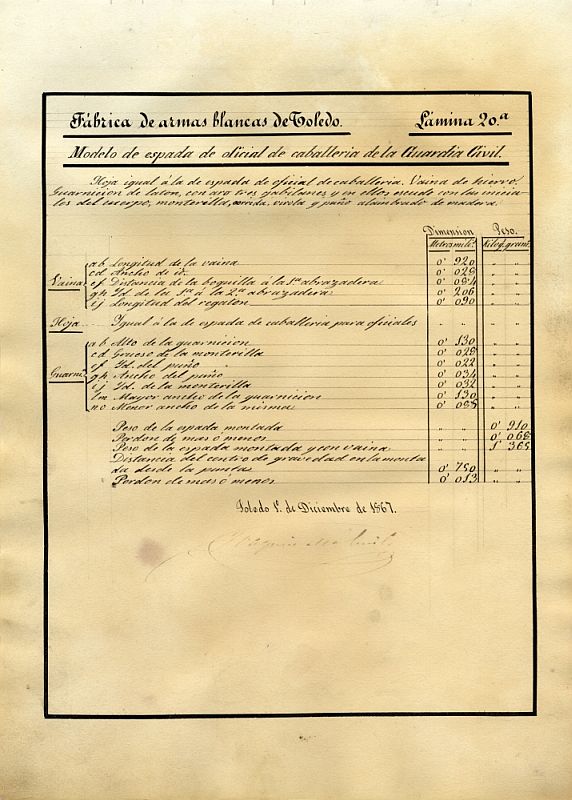 Fábrica de armas blancas de Toledo. Lámina 20.ª
Modelo de espada de oficial de caballeria de la Guardia Civil.
Hoja igual á la de espada de oficial de caballeria. Vaina de hierro.
Guarnicion de laton, con aro tres gabilanes y en ellos escudo con las inicia-
les del cuerpo, monterilla, virola y puño alambrado de madera.
Dimension Peso.
Metros mil.s Kilóg. gram.s
Vaina
ab Longitud de la vaina 0' 920 " "
cd Ancho de id. 0' 028 " "
ef Distancia de la boquilla á la 1.ª abrazadera 0' 084 " "
gh Id. de la 1.ª á la 2.ª abrazadera 0' 206 " "
ij Longitud del regaton 0' 090 " "
Hoja Ygual á la de espada de caballeria para oficiales " " " "
Guarn.n
ab Alto de la guarnicion 0' 130 " "
cd Grueso de la monterilla 0' 028 " "
ef Id. del puño 0' 022 " "
gh Ancho del puño 0' 034 " "
ij Id. de la monterilla 0' 032 " "
lm Mayor ancho de la guarnicion 0' 130 " "
no Menor ancho de la misma 0' 085 " "
Peso de la espada montada " " 0' 910
Perdon de mas ó menos " " 0' 068
Peso de la espada montada y con vaina " " 1' 365
Distancia del centro de gravedad en la monta
da desde la punta 0' 750 " "
Perdon de mas ó menos 0' 013 " "
Toledo 1.º de Diciembre de 1867.